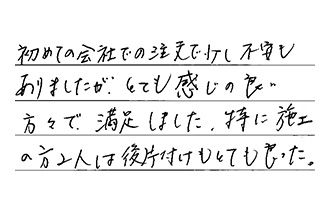 初めての会社での注文で少し不安も
ありましたが、とても感じの良い
方々で、満足しました。特に施工
の方2人は後片付けもとても良かった。